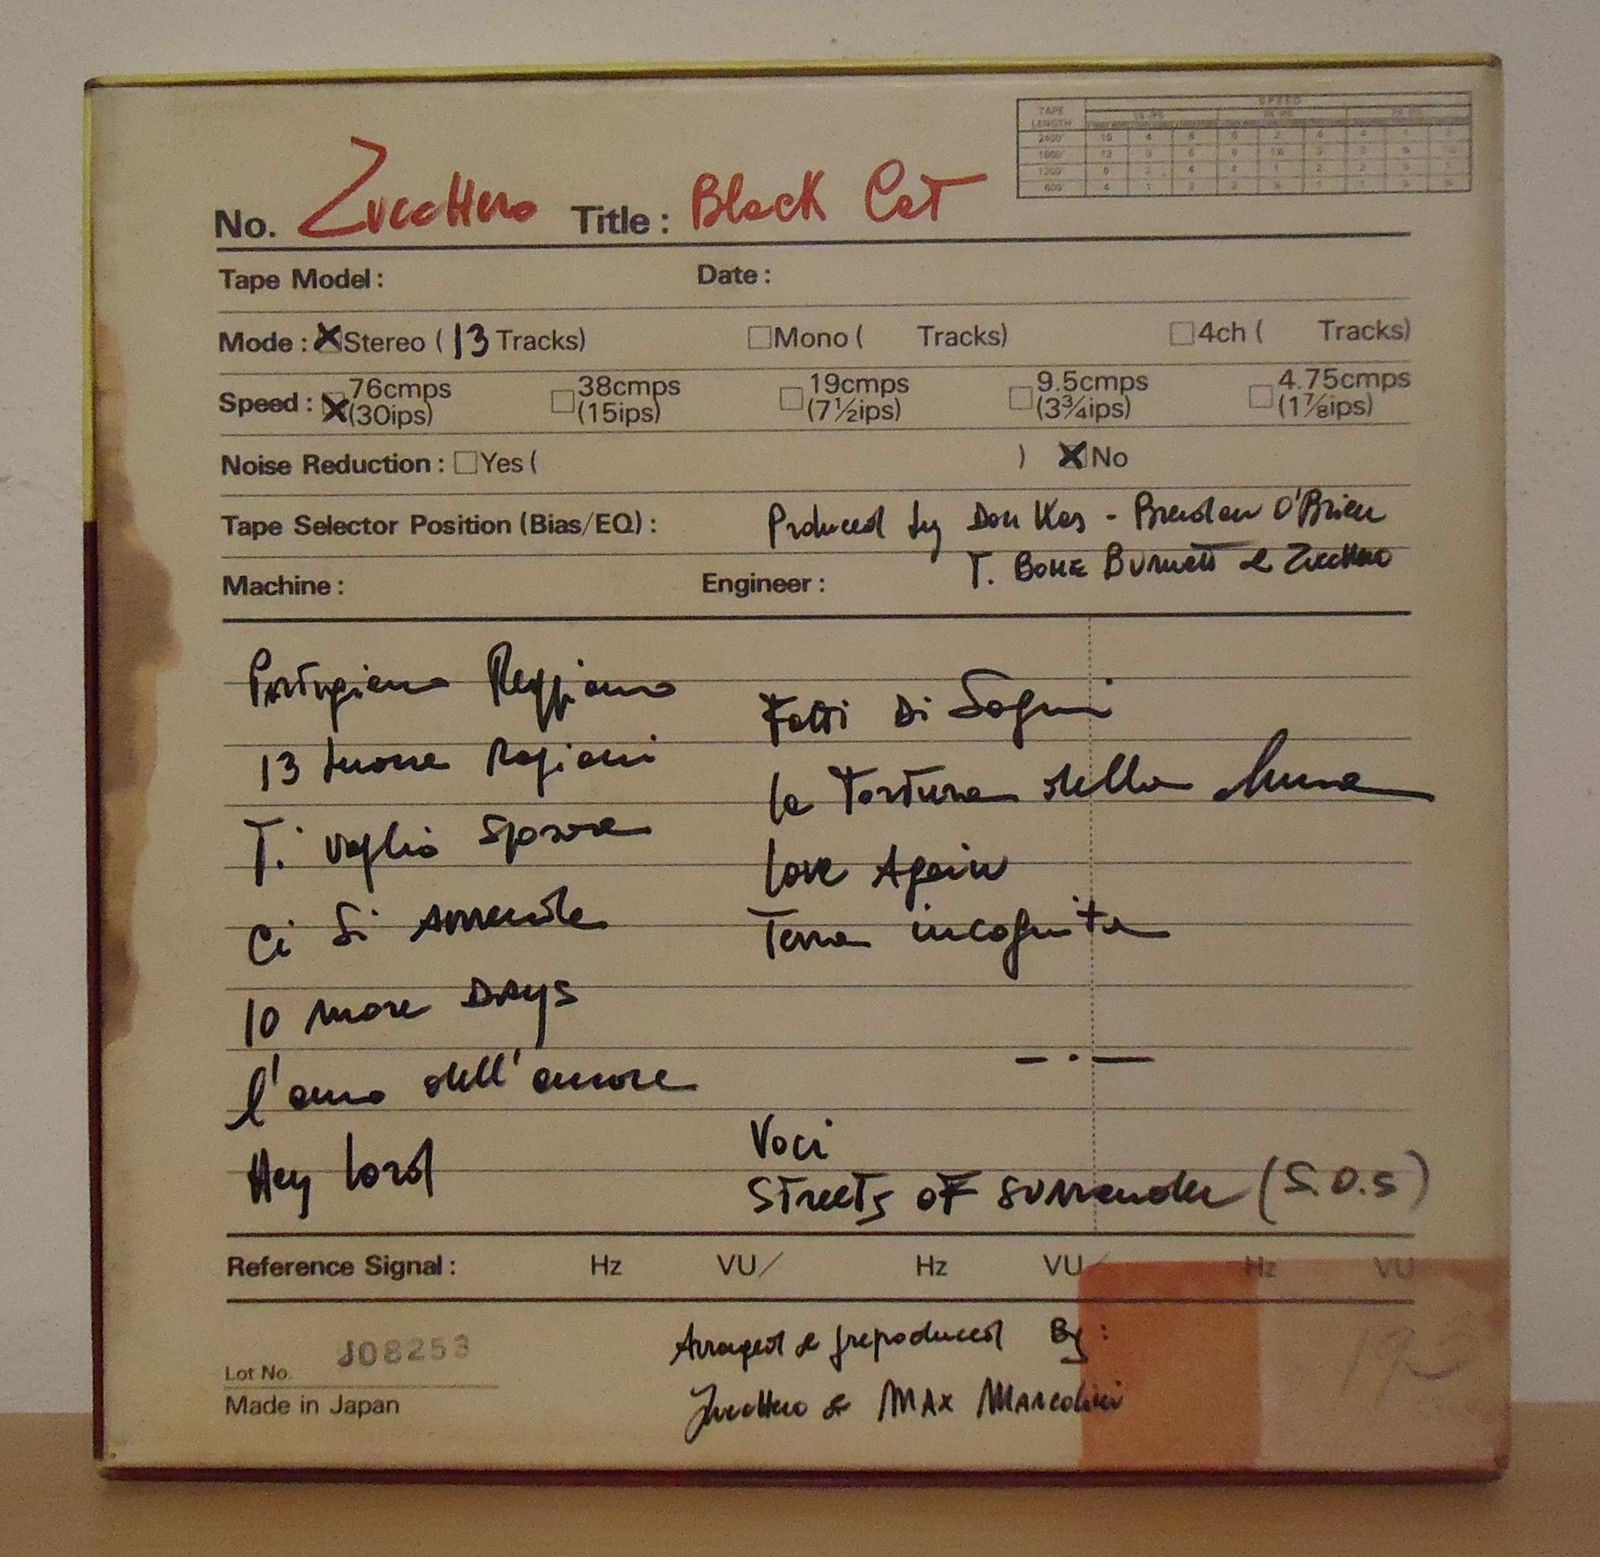 TAPE LENGTH SPEED
2400'
1800'
1200'
600'
No. Zucchero Title : Black Cat
Tape Model : Date :
Mode : Stereo ( 13 Tracks) Mono ( Tracks) 4ch ( Tracks)
Speed : 76cmps (30ips) 38cmps (15ips) 19cmps (7½ips) 9.5cmps (3¾ips) 4.75cmps (1⅞ips)
Noise Reduction : Yes ( ) No
Tape Selector Position (Bias/EQ) : Produced by Don Was - Brendan O'Brien
T. Bone Burnett & Zucchero
Machine : Engineer :
Partigiano Reggiano
13 buone Ragioni
Ti voglio sposare
Ci Si Arrende
10 more DAYS
l'anno dell'amore
Hey Lord
Fatti Di Sogni
la Tortura della luna
Love Again
Terra incognita
Voci
Streets of surrender (S.O.S)
Reference Signal : Hz VU/ Hz VU/ Hz VU
Lot No. J08253
Made in Japan
Arraged & preproduced By :
Zucchero & MAX Marcolini